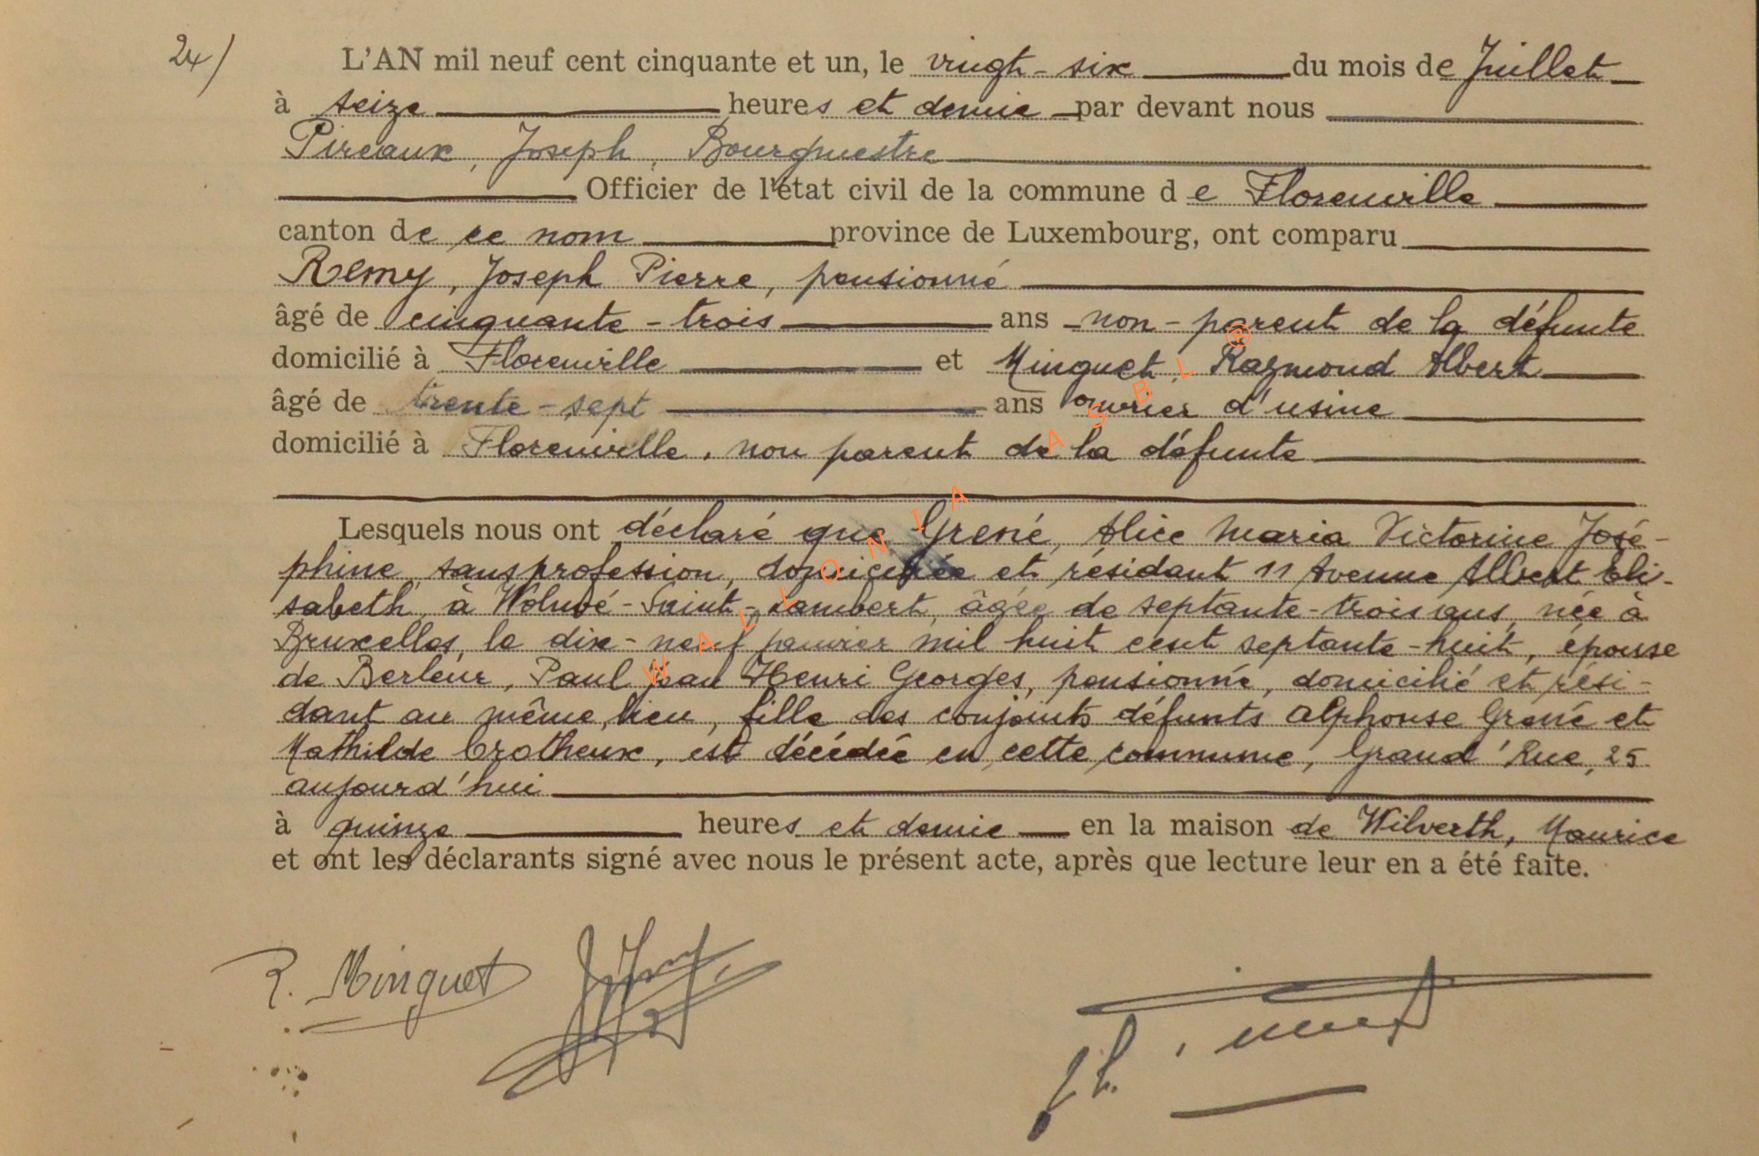 24)
L'AN mil neuf cent cinquante et un, le vingt-six du mois de Juillet
à seize heures et demie par devant nous
Pireaux, Joseph, Bourgmestre
Officier de l'état civil de la commune de Florenville
canton de ce nom province de Luxembourg, ont comparu
Remy, Joseph Pierre, pensionné
âgé de cinquante-trois ans non-parent de la défunte
domicilié à Florenville et Minguet, Raymond Albert
âgé de trente-sept ans ouvrier d'usine
domicilié à Florenville, non parent de la défunte
Lesquels nous ont déclaré que Grené, Alice Maria Victorine José-
phine, sans profession, domiciliée et résidant 11 Avenue Albert Eli-
sabeth, à Woluwé-Saint-Lambert, âgée de septante-trois ans, née à
Bruxelles, le dix-neuf janvier mil huit cent septante-huit, épouse
de Berleur, Paul Jean Henri Georges, pensionné, domicilié et rési-
dant au même lieu, fille des conjoints défunts Alphonse Grené et
Mathilde Crotheux, est décédée en cette commune, Grand'Rue, 25
aujourd'hui
à quinze heures et demie en la maison de Wilverth, Maurice
et ont les déclarants signé avec nous le présent acte, après que lecture leur en a été faite.
R. Minguet
WALLONIA ASBL ®